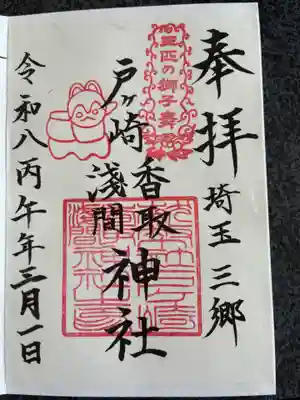 奉拝
埼玉 三郷
三匹の獅子舞
戸ヶ崎
香取
浅間
神社
令和八丙午年三月一日